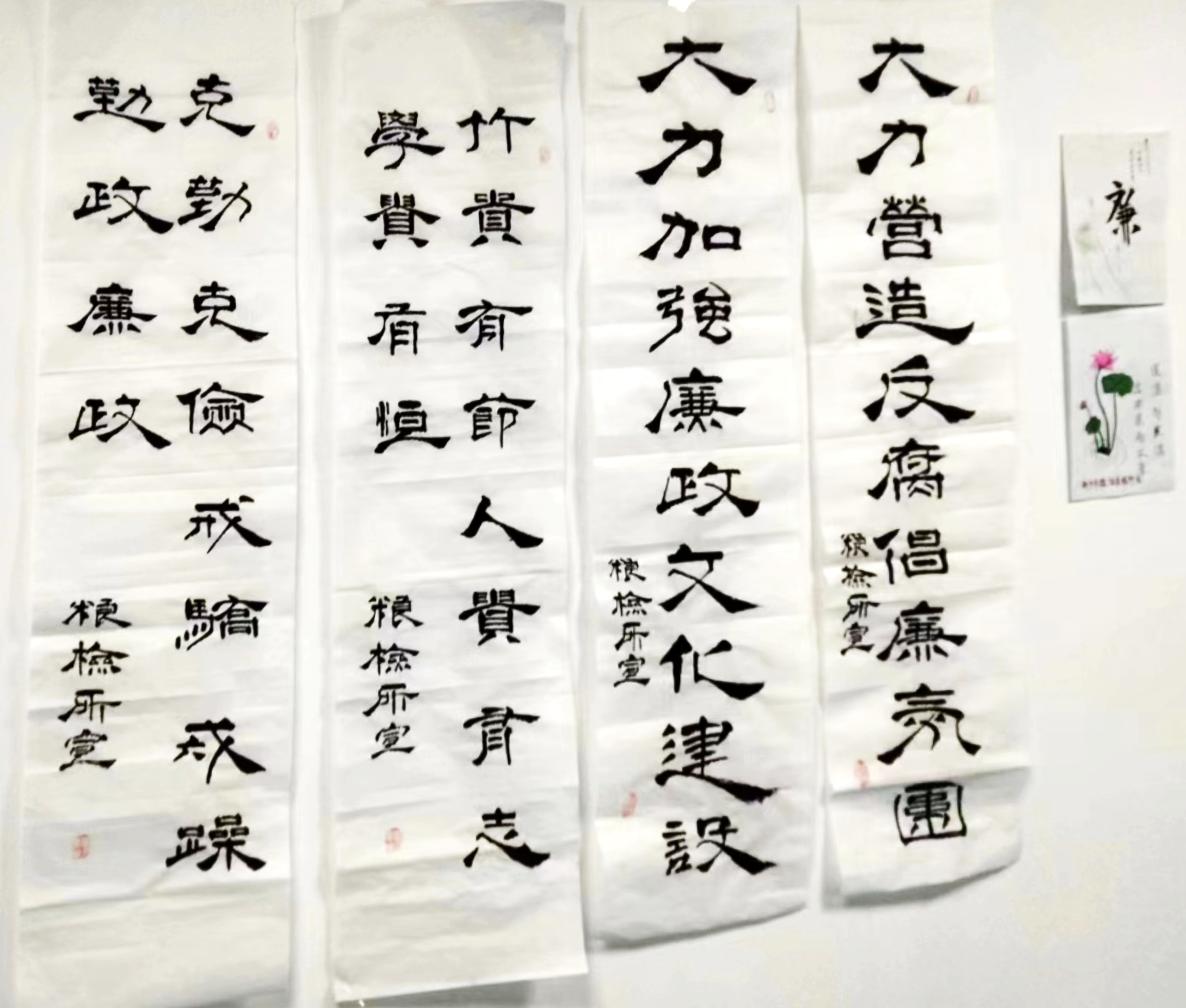 大力營造反腐倡廉氛圍
糧檢所宣
大力加強廉政文化建設
糧檢所宣
竹貴有節人貴有志
學貴有恒
糧檢所宣
克勤克儉戒驕戒躁
勤政廉政
糧檢所宣
廉